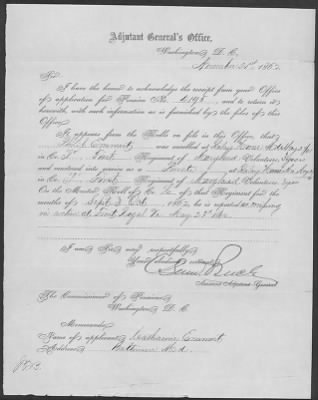 Adjutant General's Office,
Washington, D. C.
November 21st 1862
Sir:
I have the honor to acknowledge the receipt from your Office
of application for Pension No. 1198, and to return it
herewith, with such information as is furnished by the files of this
Office.
It appears from the Rolls on file in this Office, that
was enrolled at
in Co. First Regiment of Maryland Volunteers,
and mustered into service as a Private at
in Co. First Regiment of Maryland Volunteers,
On the Muster Roll of Co. of that Regiment for the
months of Sept & Oct, 1862, he is reported as missing
in action at Front Royal Va May 23d
I am, Sir, very respectfully,
Your obedient servant,
Assistant Adjutant General.
The Commissioner of Pensions,
Washington, D. C.
Memoranda:
Name of applicant, Catharine Emmert
Address, Baltimore Md.